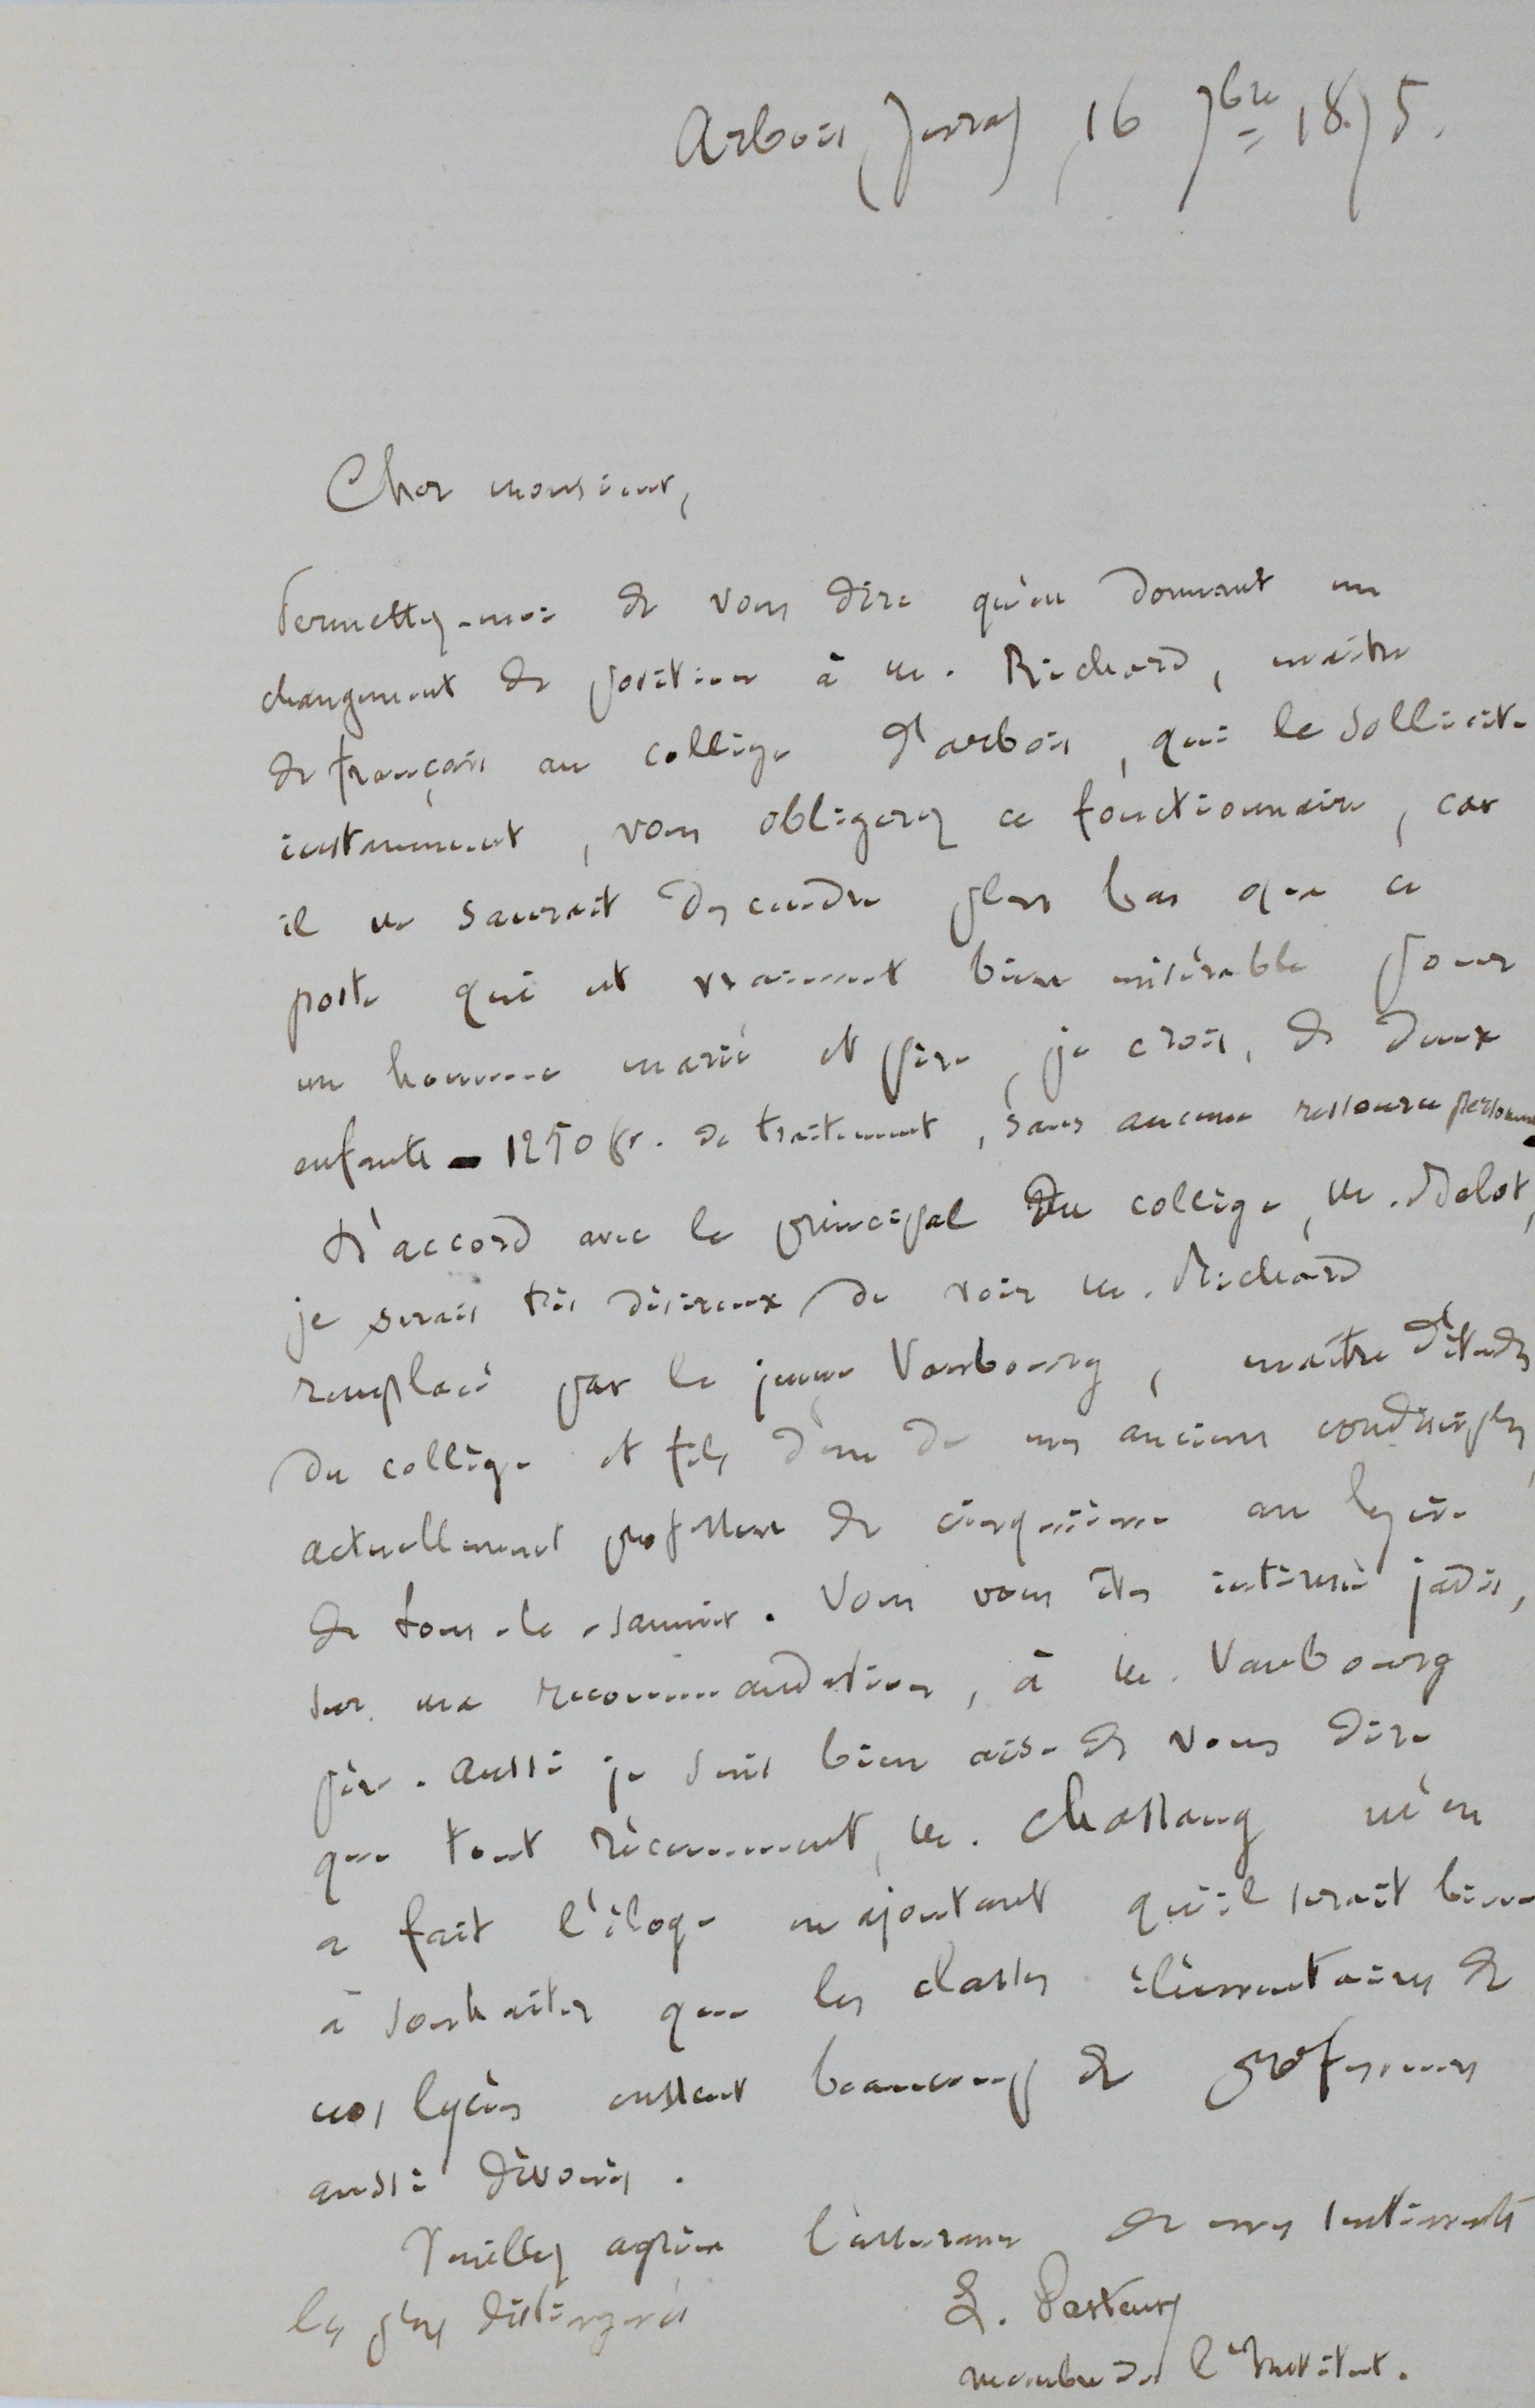 Arbois (Jura) 16 7bre 1875.
Cher monsieur,
Permettez-moi de vous dire qu'en donnant un
changement de position à M. Richard, maître
de français au collège d'arbois, qui le sollicite
instamment, vous obligerez ce fonctionnaire, car
il ne saurait descendre plus bas que ce
poste qui est vraiment bien misérable pour
un homme marié et père, je crois, de deux
enfants - 1250 fr. de traitement, sans aucune ressource personnelle
D'accord avec le principal du collège, M.
je serais très désireux de voir M. Richard
remplacé par le jeune Vaubourg, maître d'études
du collège et fils d'un de mes anciens condisciples,
actuellement professeur de cinquième au lycée
de Lons-le-saunier. Vous vous êtes intéressé jadis,
sur ma recommandation, à M. Vaubourg
père. aussi je suis bien aise de vous dire
que tout récemment, M. Chassang m'en
a fait l'éloge en ajoutant qu'il serait bien
à souhaiter que les classes élémentaires de
nos lycées eussent beaucoup de professeurs
aussi dévoués.
Veuillez agréer l'assurance de mes sentiments
les plus distingués
L. Pasteur
membre de l'Institut.